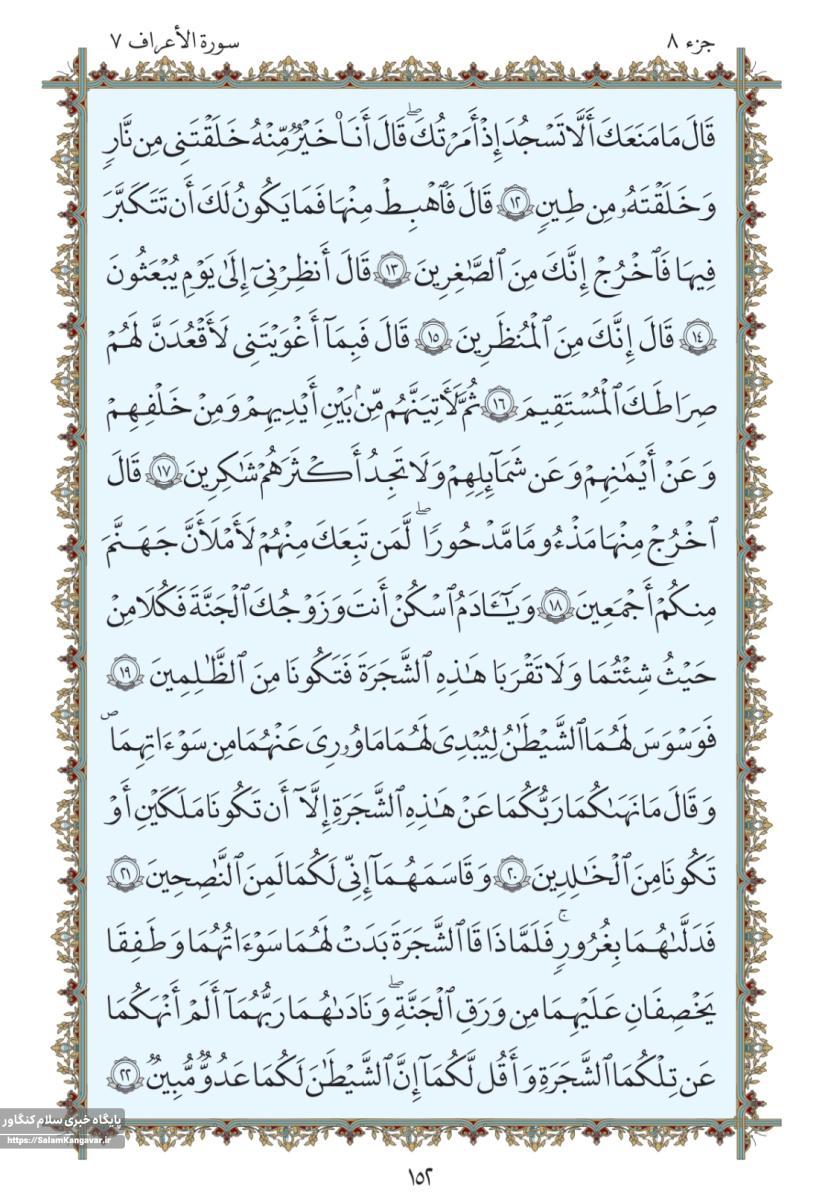 جزء ٨
سورة الأعراف ٧
قَالَ مَا مَنَعَكَ أَلَّا تَسْجُدَ إِذْ أَمَرْتُكَ ۖ قَالَ أَنَا۠ خَيْرٌ مِّنْهُ خَلَقْتَنِى مِن نَّارٍ
وَخَلَقْتَهُۥ مِن طِينٍ ﴿١٢﴾ قَالَ فَٱهْبِطْ مِنْهَا فَمَا يَكُونُ لَكَ أَن تَتَكَبَّرَ
فِيهَا فَٱخْرُجْ إِنَّكَ مِنَ ٱلصَّٰغِرِينَ ﴿١٣﴾ قَالَ أَنظِرْنِىٓ إِلَىٰ يَوْمِ يُبْعَثُونَ
﴿١٤﴾ قَالَ إِنَّكَ مِنَ ٱلْمُنظَرِينَ ﴿١٥﴾ قَالَ فَبِمَآ أَغْوَيْتَنِى لَأَقْعُدَنَّ لَهُمْ
صِرَاطَكَ ٱلْمُسْتَقِيمَ ﴿١٦﴾ ثُمَّ لَأٓتِيَنَّهُم مِّنۢ بَيْنِ أَيْدِيهِمْ وَمِنْ خَلْفِهِمْ
وَعَنْ أَيْمَٰنِهِمْ وَعَن شَمَآئِلِهِمْ وَلَا تَجِدُ أَكْثَرَهُمْ شَٰكِرِينَ ﴿١٧﴾ قَالَ
ٱخْرُجْ مِنْهَا مَذْءُومًا مَّدْحُورًا ۖ لَّمَن تَبِعَكَ مِنْهُمْ لَأَمْلَأَنَّ جَهَنَّمَ
مِنكُمْ أَجْمَعِينَ ﴿١٨﴾ وَيَٰٓـَٔادَمُ ٱسْكُنْ أَنتَ وَزَوْجُكَ ٱلْجَنَّةَ فَكُلَا مِنْ
حَيْثُ شِئْتُمَا وَلَا تَقْرَبَا هَٰذِهِ ٱلشَّجَرَةَ فَتَكُونَا مِنَ ٱلظَّٰلِمِينَ ﴿١٩﴾
فَوَسْوَسَ لَهُمَا ٱلشَّيْطَٰنُ لِيُبْدِىَ لَهُمَا مَا وُۥرِىَ عَنْهُمَا مِن سَوْءَٰتِهِمَا
وَقَالَ مَا نَهَىٰكُمَا رَبُّكُمَا عَنْ هَٰذِهِ ٱلشَّجَرَةِ إِلَّآ أَن تَكُونَا مَلَكَيْنِ أَوْ
تَكُونَا مِنَ ٱلْخَٰلِدِينَ ﴿٢٠﴾ وَقَاسَمَهُمَآ إِنِّى لَكُمَا لَمِنَ ٱلنَّٰصِحِينَ ﴿٢١﴾
فَدَلَّىٰهُمَا بِغُرُورٍ ۚ فَلَمَّا ذَاقَا ٱلشَّجَرَةَ بَدَتْ لَهُمَا سَوْءَٰتُهُمَا وَطَفِقَا
يَخْصِفَانِ عَلَيْهِمَا مِن وَرَقِ ٱلْجَنَّةِ ۖ وَنَادَىٰهُمَا رَبُّهُمَآ أَلَمْ أَنْهَكُمَا
عَن تِلْكُمَا ٱلشَّجَرَةِ وَأَقُل لَّكُمَآ إِنَّ ٱلشَّيْطَٰنَ لَكُمَا عَدُوٌّ مُّبِينٌ ﴿٢٢﴾
پایگاه خبری سلام کنگاور
https://SalamKangavar.ir
١٥٢